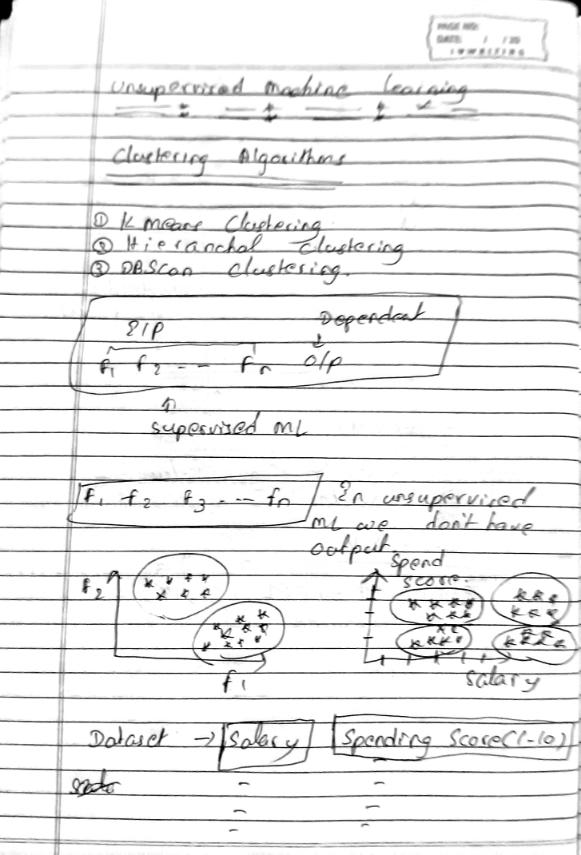 PAGE NO:
DATE: / /20
Unsupervised Machine Learning
Clustering Algorithms
① K means Clustering
② Hieranchal Clustering
③ DBScan Clustering.
I/P Dependent
f1 f2 -- fn O/P
supervised ML
f1 f2 f3 -- fn In unsupervised
ML we don't have
output.
f2
f1
Spend
score.
Salary
Dataset → Salary Spending Score(1-10)